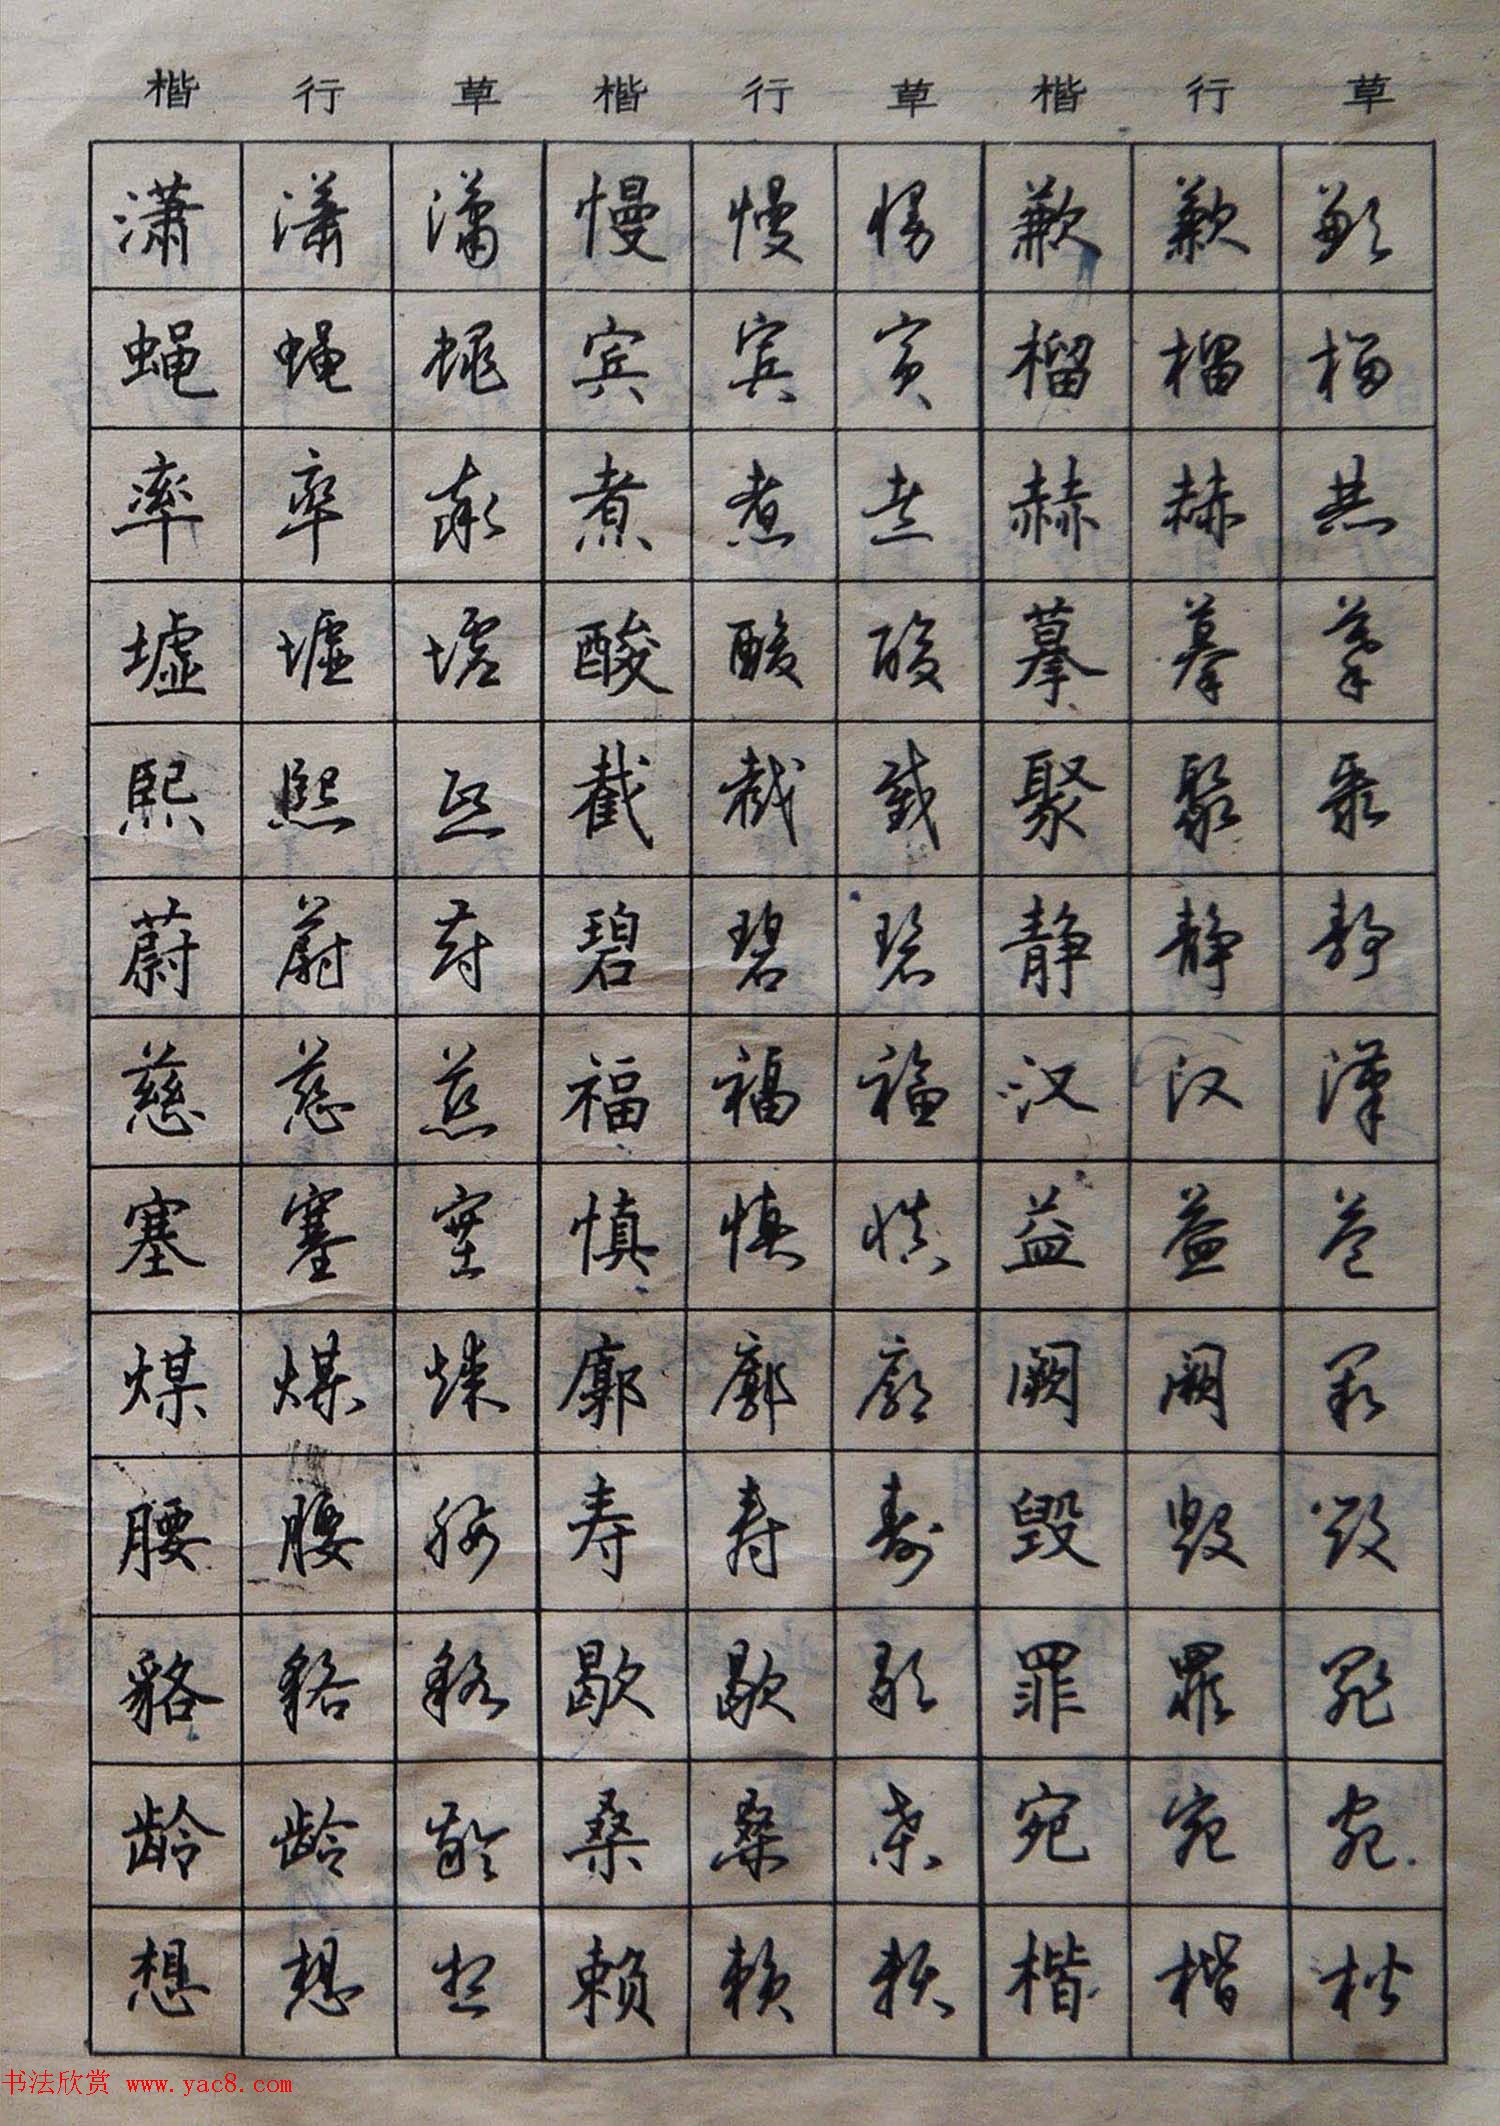 楷 行 草 楷 行 草 楷 行 草
潇 潇 潇 慢 慢 慢 歉 歉 歉
蝇 蝇 蝇 宾 宾 宾 榴 榴 榴
率 率 率 煮 煮 煮 赫 赫 赫
墟 墟 墟 酸 酸 酸 摹 摹 摹
熙 熙 熙 截 截 截 聚 聚 聚
蔚 蔚 蔚 碧 碧 碧 静 静 静
慈 慈 慈 福 福 福 汉 汉 漢
塞 塞 塞 慎 慎 慎 益 益 益
煤 煤 煤 廓 廓 廓 阙 阙 阙
腰 腰 腰 寿 寿 寿 毁 毁 毁
貉 貉 貉 歇 歇 歇 罪 罪 罪
龄 龄 龄 桑 桑 桑 宛 宛 宛
想 想 想 赖 赖 赖 楷 楷 楷
书法欣赏 www.yac8.com